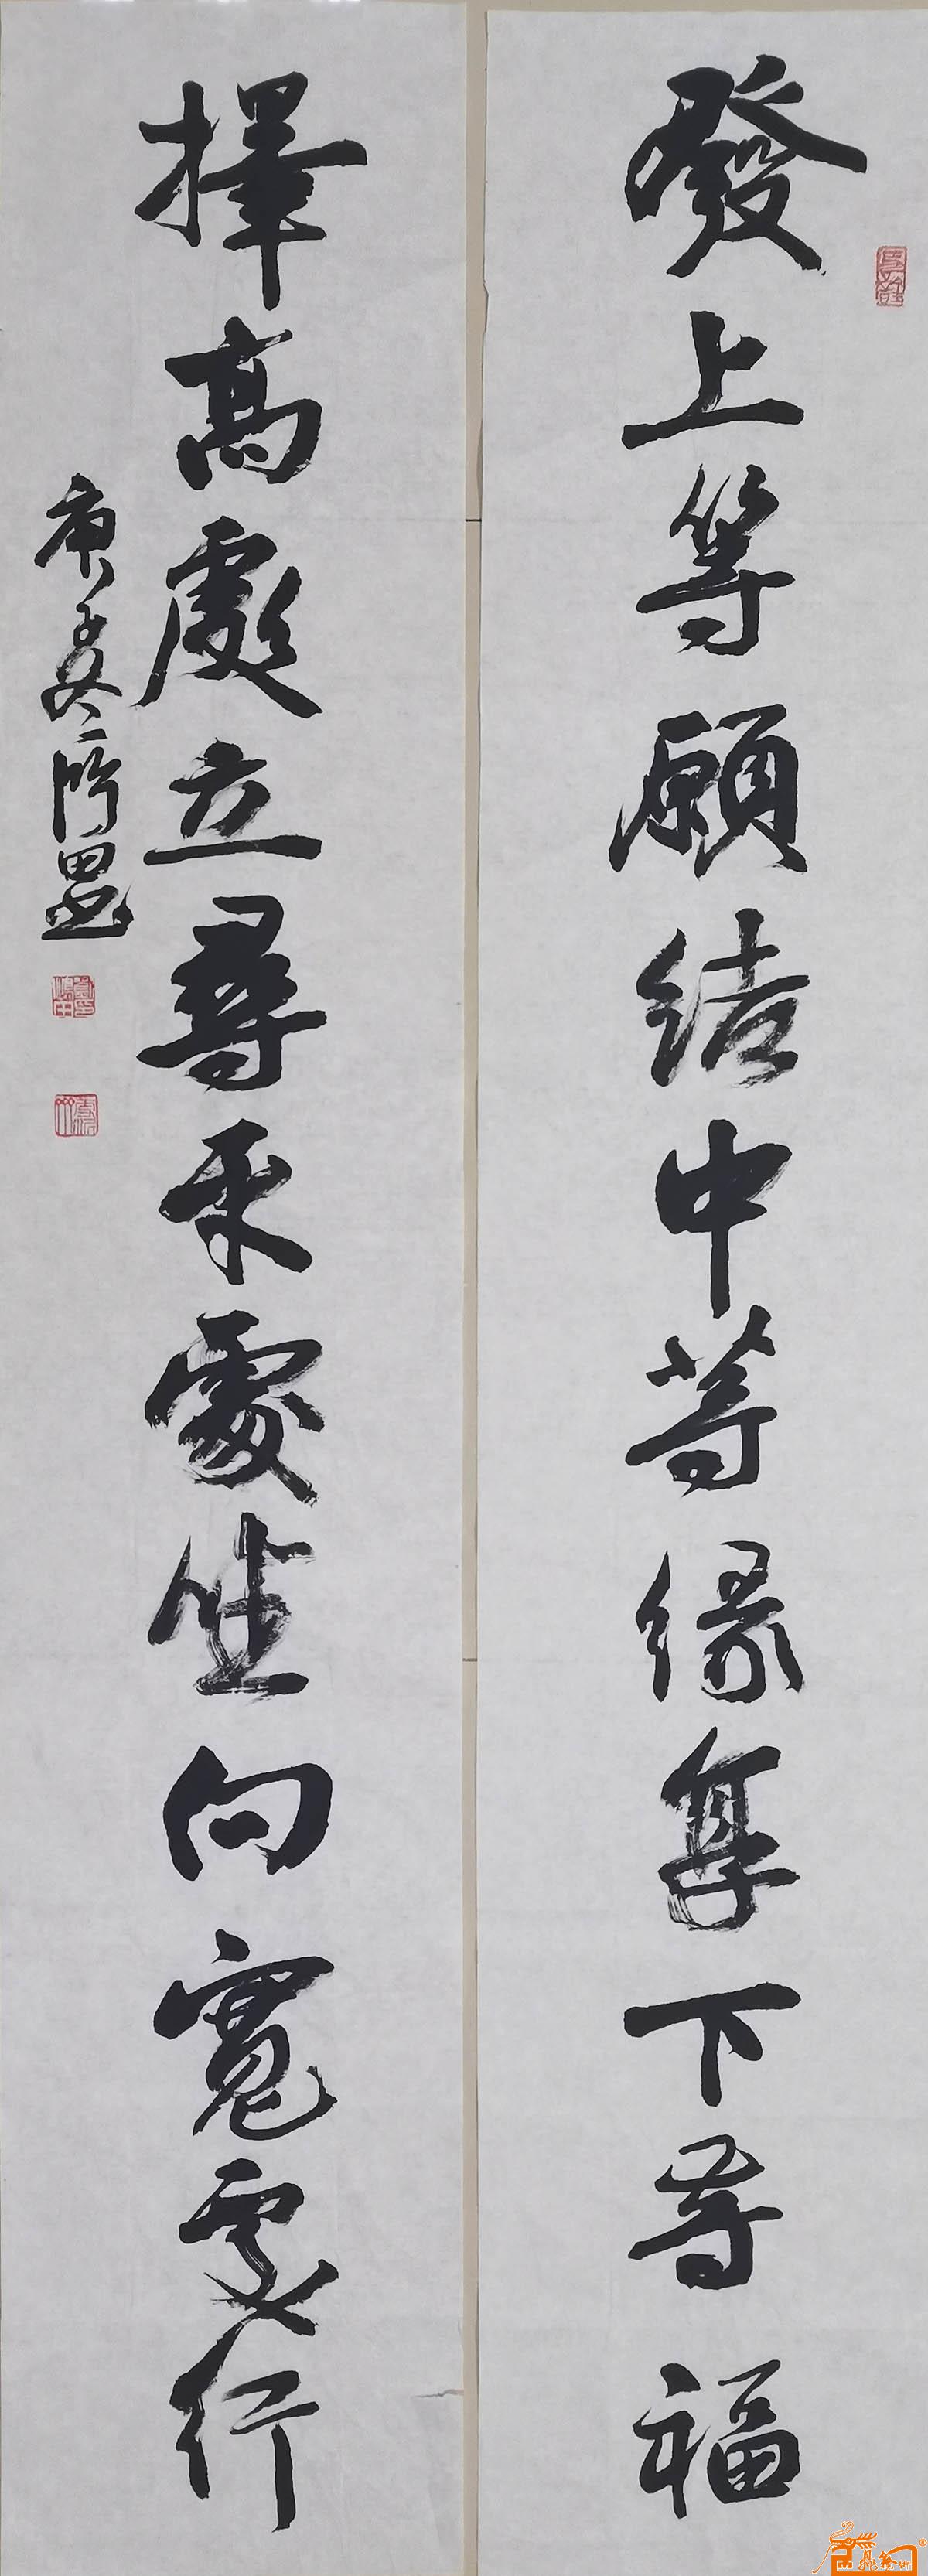 發上等願結中等緣享下等福
擇高處立尋平處坐向寬處行
庚子冬